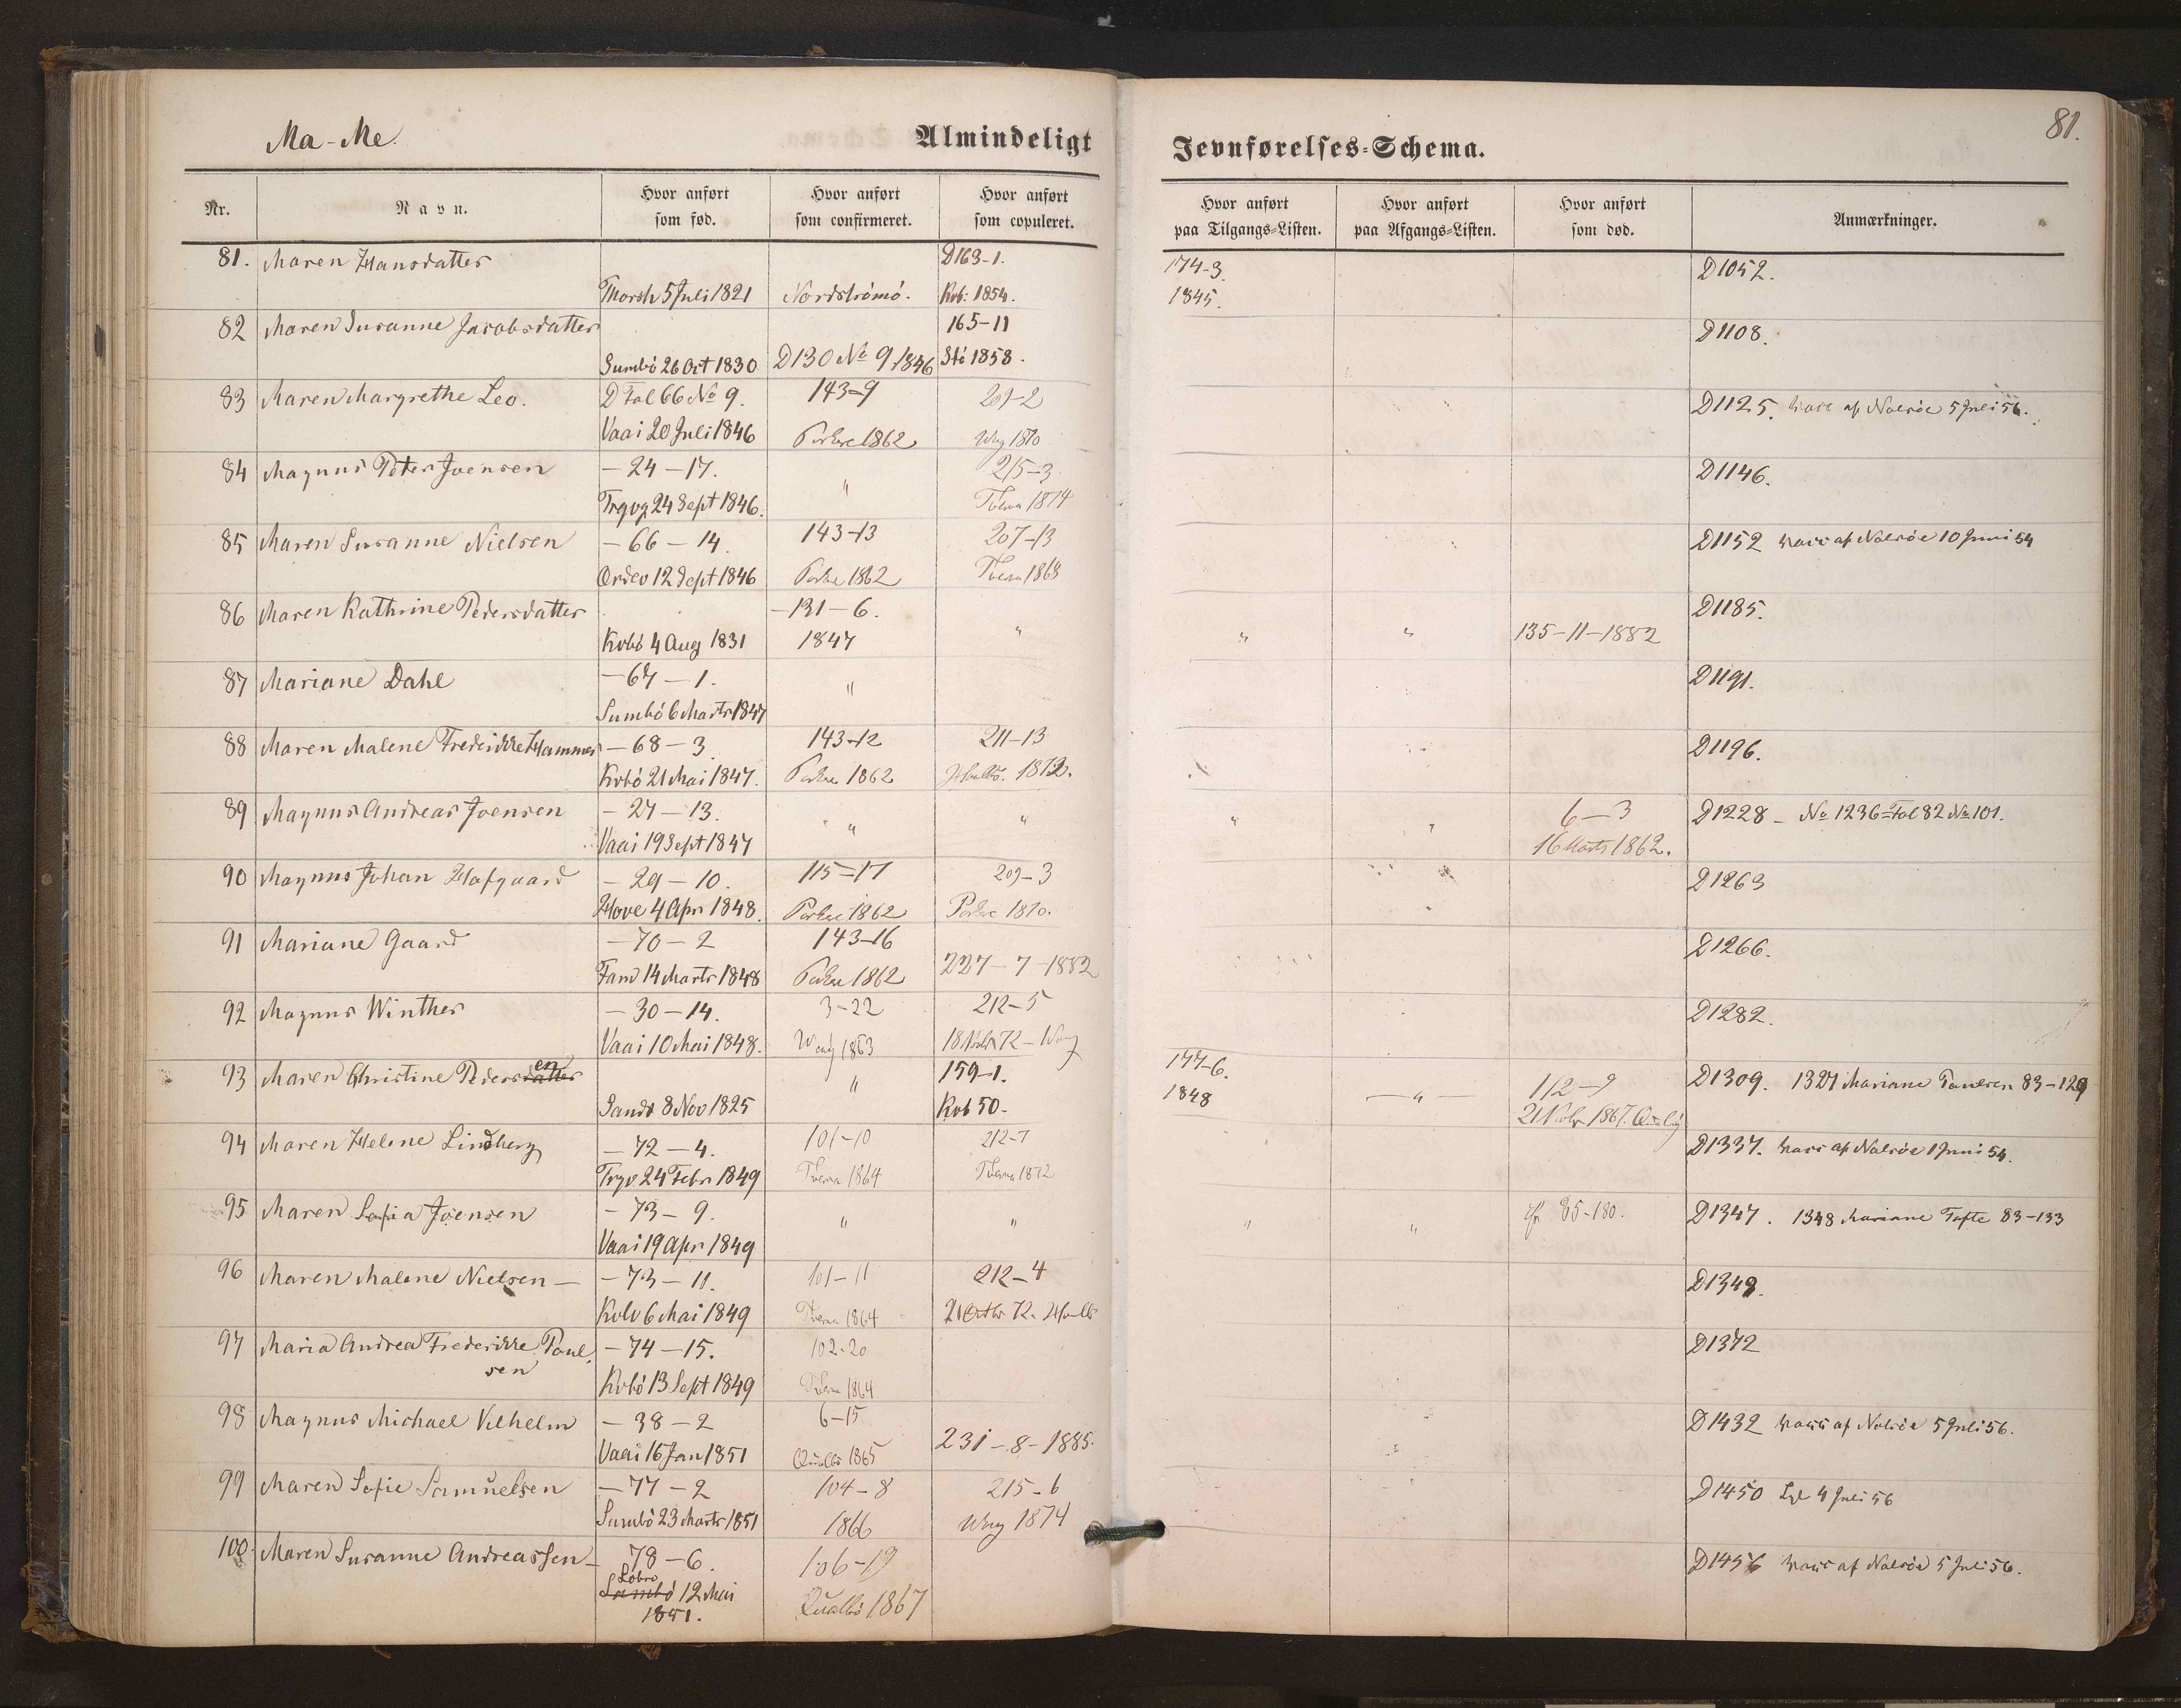 Ma-Me.
Almindeligt
Jevnførelses-Schema.
81.
Nr.
Navn.
Hvor anført som fød.
Hvor anført som confirmeret.
Hvor anført som copuleret.
Hvor anført paa Tilgangs-Listen.
Hvor anført paa Afgangs-Listen.
Hvor anført som død.
Anmærkninger.
81. Maren Hansdatter D163-1. 174-3. D1052.
5 Juli 1821 Nordströmö. Kvb: 1854. 1845.
82 Maren Susanne Jacobsdatter 165-11 D1108.
Sumbö 26 Oct 1830 D130 No 9 1846 1858.
83 Maren Margrethe Leo. D Fol 66 No 9. 143-9 209-2 D1125. vacc af Nolsöe 5 Juli 56.
Vaai 20 Juli 1846 Porkere 1862 Waag 1870
84 Magnus Peter Joensen -24-17. " 215-3 D1146.
Trgvg 24 Sept 1846. Tveraa 1874
85 Maren Susanne Nielsen -66-14. 143-13 207-13 D1152 vacc af Nolsöe 10 Juni 54
Ordev 12 Sept 1846 Porkere 1862 Tveraa 1868
86 Maren Kathrine Pedersdatter -131-6. D1185.
Kvbö 4 Aug 1831 1847 " " " 135-11-1882
87 Mariane Dahl -67-1. " D1191.
Sumbö 6 Marts 1847
88 Maren Malene Frederikke Hammer -68-3. 143-12 211-13 D1196.
Kvbö 21 Mai 1847. Porkere 1862 1872.
89 Magnus Andreas Joensen -27-13. " " " " 6-3 D1228 - No 1236 = Fol 82 No 101.
Vaai 19 Sept 1847 16 Marts 1862.
90 Magnus Johan Hofgaard -29-10. 115-17 209-3 D1263
Hove 4 Apr 1848. Porkere 1862 Porkere 1870.
91 Mariane Gaard -70-2 143-16 D1266.
Fam 14 Marts 1848 Porkere 1862 227-7-1882
92 Magnus Winther -30-14. 3-22 212-5 D1282.
Vaai 10 Mai 1848. Waag 1863 72 - Waag
93 Maren Christine Pedersdatter en " 159-1. 177-6. 112-9 D1309. 1327 Mariane Poulsen 83-129
Sandö 8 Nov 1825 Kvb 50. 1848 - " - 21 1867.
94 Maren Helene Lindberg -72-4. 101-10 212-7 D1337. vacc af Nolsöe 1 Juni 54.
Trgv. 24 Febr 1849 Tveraa 1864 Tveraa 1872
95 Maren Sofia Joensen -73-9. " " " " 85-180. D1347. 1348 Mariane Tofte 83-133
Vaai 19 Apr 1849
96 Maren Malene Nielsen - -73-11. 101-11 212-4 D1349.
6 Mai 1849 Tveraa 1864 72.
97 Maria Andrea Frederikke Poul- -74-15. 102-20 D1372
sen
Kvbö 13 Sept 1849 Tveraa 1864
98 Magnus Michael Vilhelm -38-2 6-15 D1432 vacc af Nolsöe 5 Juli 56.
Vaai 16 Jan 1851 Qualbö 1865 231-8-1885.
99 Maren Sofie Samuelsen -77-2 104-8 215-6 D1450 4 Juli 56
Sumbö 23 Marts 1851 1866 Waag 1874
100. Maren Susanne Andreassen - 78-6. 106-19 D1456 vacc af Nolsöe 5 Juli 56.
Lobra
Sumbö 12 Mai Qualbö 1867
1851.